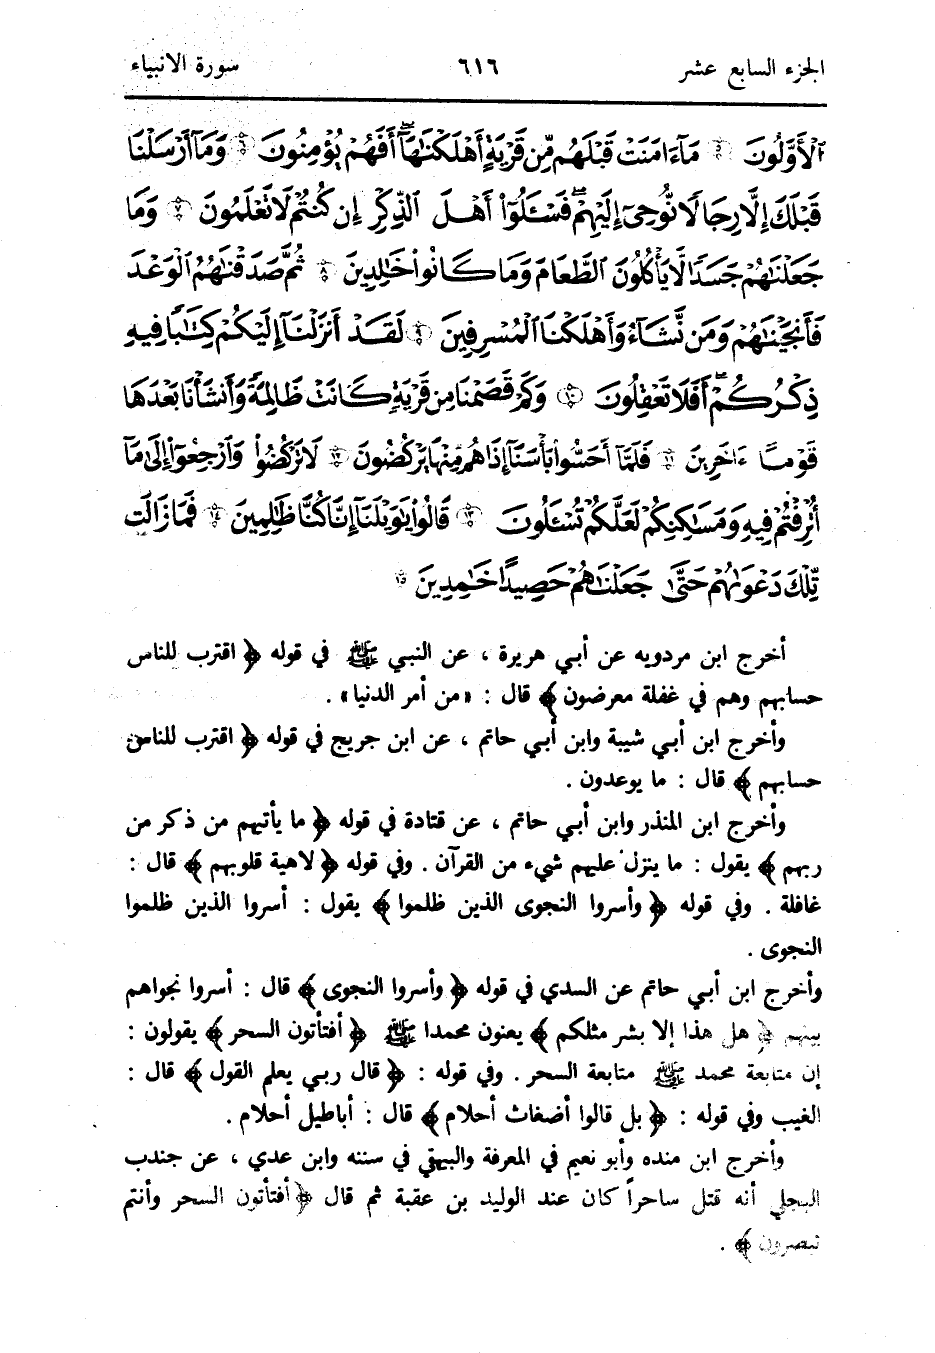 الجزء السابع عشر ٦١٦ سورة الانبياء
ٱلْأَوَّلُونَ ۝٥ مَآءَامَنَتْ قَبْلَهُم مِّن قَرْيَةٍ أَهْلَكْنَٰهَآ أَفَهُمْ يُؤْمِنُونَ ۝٦ وَمَآ أَرْسَلْنَا
قَبْلَكَ إِلَّا رِجَالًا نُّوحِىٓ إِلَيْهِمْ فَسْـَٔلُوٓا۟ أَهْلَ ٱلذِّكْرِ إِن كُنتُمْ لَا تَعْلَمُونَ ۝٧ وَمَا
جَعَلْنَٰهُمْ جَسَدًا لَّا يَأْكُلُونَ ٱلطَّعَامَ وَمَا كَانُوا۟ خَٰلِدِينَ ۝٨ ثُمَّ صَدَقْنَٰهُمُ ٱلْوَعْدَ
فَأَنجَيْنَٰهُمْ وَمَن نَّشَآءُ وَأَهْلَكْنَا ٱلْمُسْرِفِينَ ۝٩ لَقَدْ أَنزَلْنَآ إِلَيْكُمْ كِتَٰبًا فِيهِ
ذِكْرُكُمْ أَفَلَا تَعْقِلُونَ ۝١٠ وَكَمْ قَصَمْنَا مِن قَرْيَةٍ كَانَتْ ظَالِمَةً وَأَنشَأْنَا بَعْدَهَا
قَوْمًا ءَاخَرِينَ ۝١١ فَلَمَّآ أَحَسُّوا۟ بَأْسَنَآ إِذَا هُم مِّنْهَا يَرْكُضُونَ ۝١٢ لَا تَرْكُضُوا۟ وَٱرْجِعُوٓا۟ إِلَىٰ مَآ
أُتْرِفْتُمْ فِيهِ وَمَسَٰكِنِكُمْ لَعَلَّكُمْ تُسْـَٔلُونَ ۝١٣ قَالُوا۟ يَٰوَيْلَنَآ إِنَّا كُنَّا ظَٰلِمِينَ ۝١٤ فَمَا زَالَت
تِّلْكَ دَعْوَىٰهُمْ حَتَّىٰ جَعَلْنَٰهُمْ حَصِيدًا خَٰمِدِينَ ۝١٥
أخرج ابن مردويه عن أبي هريرة ، عن النبي ﷺ في قوله ﴿ اقترب للناس
حسابهم وهم في غفلة معرضون ﴾ قال : «من أمر الدنيا» .
وأخرج ابن أبي شيبة وابن أبي حاتم ، عن ابن جريج في قوله ﴿ اقترب للناس
حسابهم ﴾ قال : ما يوعدون .
وأخرج ابن المنذر وابن أبي حاتم ، عن قتادة في قوله ﴿ ما يأتيهم من ذكر من
ربهم ﴾ يقول : ما ينزل عليهم شيء من القرآن . وفي قوله ﴿ لاهية قلوبهم ﴾ قال :
غافلة . وفي قوله ﴿ وأسروا النجوى الذين ظلموا ﴾ يقول : أسروا الذين ظلموا
النجوى .
وأخرج ابن أبي حاتم عن السدي في قوله ﴿ وأسروا النجوى ﴾ قال : أسروا نجواهم
بينهم ﴿ هل هذا إلا بشر مثلكم ﴾ يعنون محمدا ﷺ ﴿ أفتأتون السحر ﴾ يقولون :
إن متابعة محمد ﷺ متابعة السحر . وفي قوله : ﴿ قال ربي يعلم القول ﴾ قال :
الغيب وفي قوله : ﴿ بل قالوا أضغاث أحلام ﴾ قال : أباطيل أحلام .
وأخرج ابن منده وأبو نعيم في المعرفة والبيهقي في سننه وابن عدي ، عن جندب
البجلي أنه قتل ساحراً كان عند الوليد بن عقبة ثم قال ﴿ أفتأتون السحر وأنتم
تبصرون ﴾ .